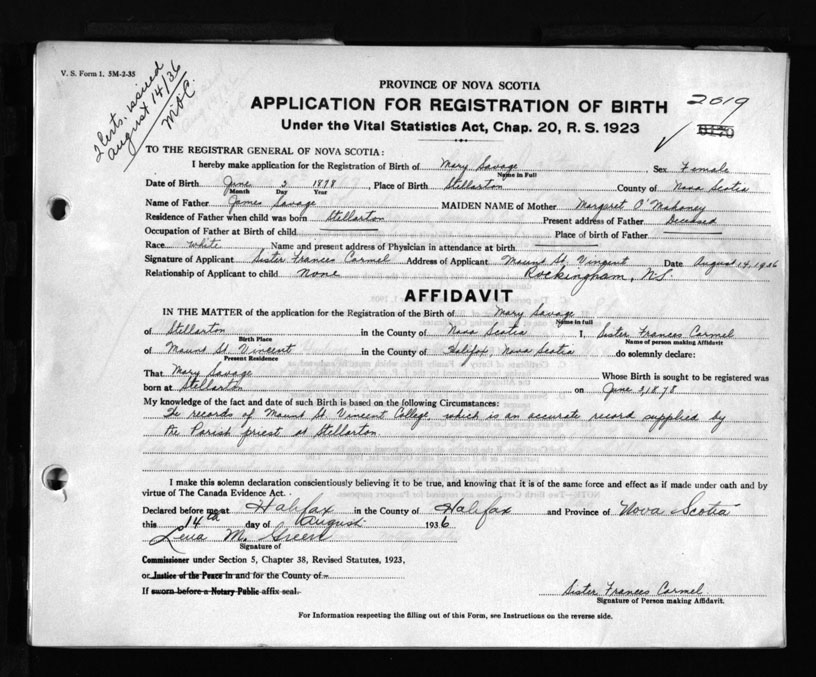 V. S. Form 1. 5M-2-35
2 Certs. issued
August 14/36
PROVINCE OF NOVA SCOTIA
APPLICATION FOR REGISTRATION OF BIRTH
2019
Under the Vital Statistics Act, Chap. 20, R. S. 1923
TO THE REGISTRAR GENERAL OF NOVA SCOTIA:
I hereby make application for the Registration of Birth of Mary Savage Sex Female
Name in Full
Date of Birth June 2 1878, Place of Birth Stellarton County of Nova Scotia
Month Day Year
Name of Father James Savage MAIDEN NAME of Mother Margaret O'Mahoney
Residence of Father when child was born Stellarton Present address of Father Deceased
Occupation of Father at Birth of child Place of birth of Father
Race White Name and present address of Physician in attendance at birth
Signature of Applicant Sister Frances Carmel Address of Applicant Mount St. Vincent Date August 14, 1936
Relationship of Applicant to child None Rockingham, N.S.
AFFIDAVIT
IN THE MATTER of the application for the Registration of the Birth of Mary Savage
Name in full
of Stellarton in the County of Nova Scotia I, Sister Frances Carmel
Birth Place Name of person making Affidavit
of Mount St. Vincent in the County of Halifax, Nova Scotia do solemnly declare:
Present Residence
That Mary Savage Whose Birth is sought to be registered was
born at Stellarton on June 2, 1878
My knowledge of the fact and date of such Birth is based on the following Circumstances:
The records of Mount St. Vincent College, which is an accurate record supplied by
the Parish priest at Stellarton
I make this solemn declaration conscientiously believing it to be true, and knowing that it is of the same force and effect as if made under oath and by
virtue of The Canada Evidence Act.
Declared before me at Halifax in the County of Halifax and Province of Nova Scotia
this 14th day of August 1936
Lena M. Green
Signature of
Commissioner under Section 5, Chapter 38, Revised Statutes, 1923,
or Justice of the Peace in and for the County of
If sworn before a Notary Public affix seal.
Sister Frances Carmel
Signature of Person making Affidavit.
For Information respecting the filling out of this Form, see Instructions on the reverse side.